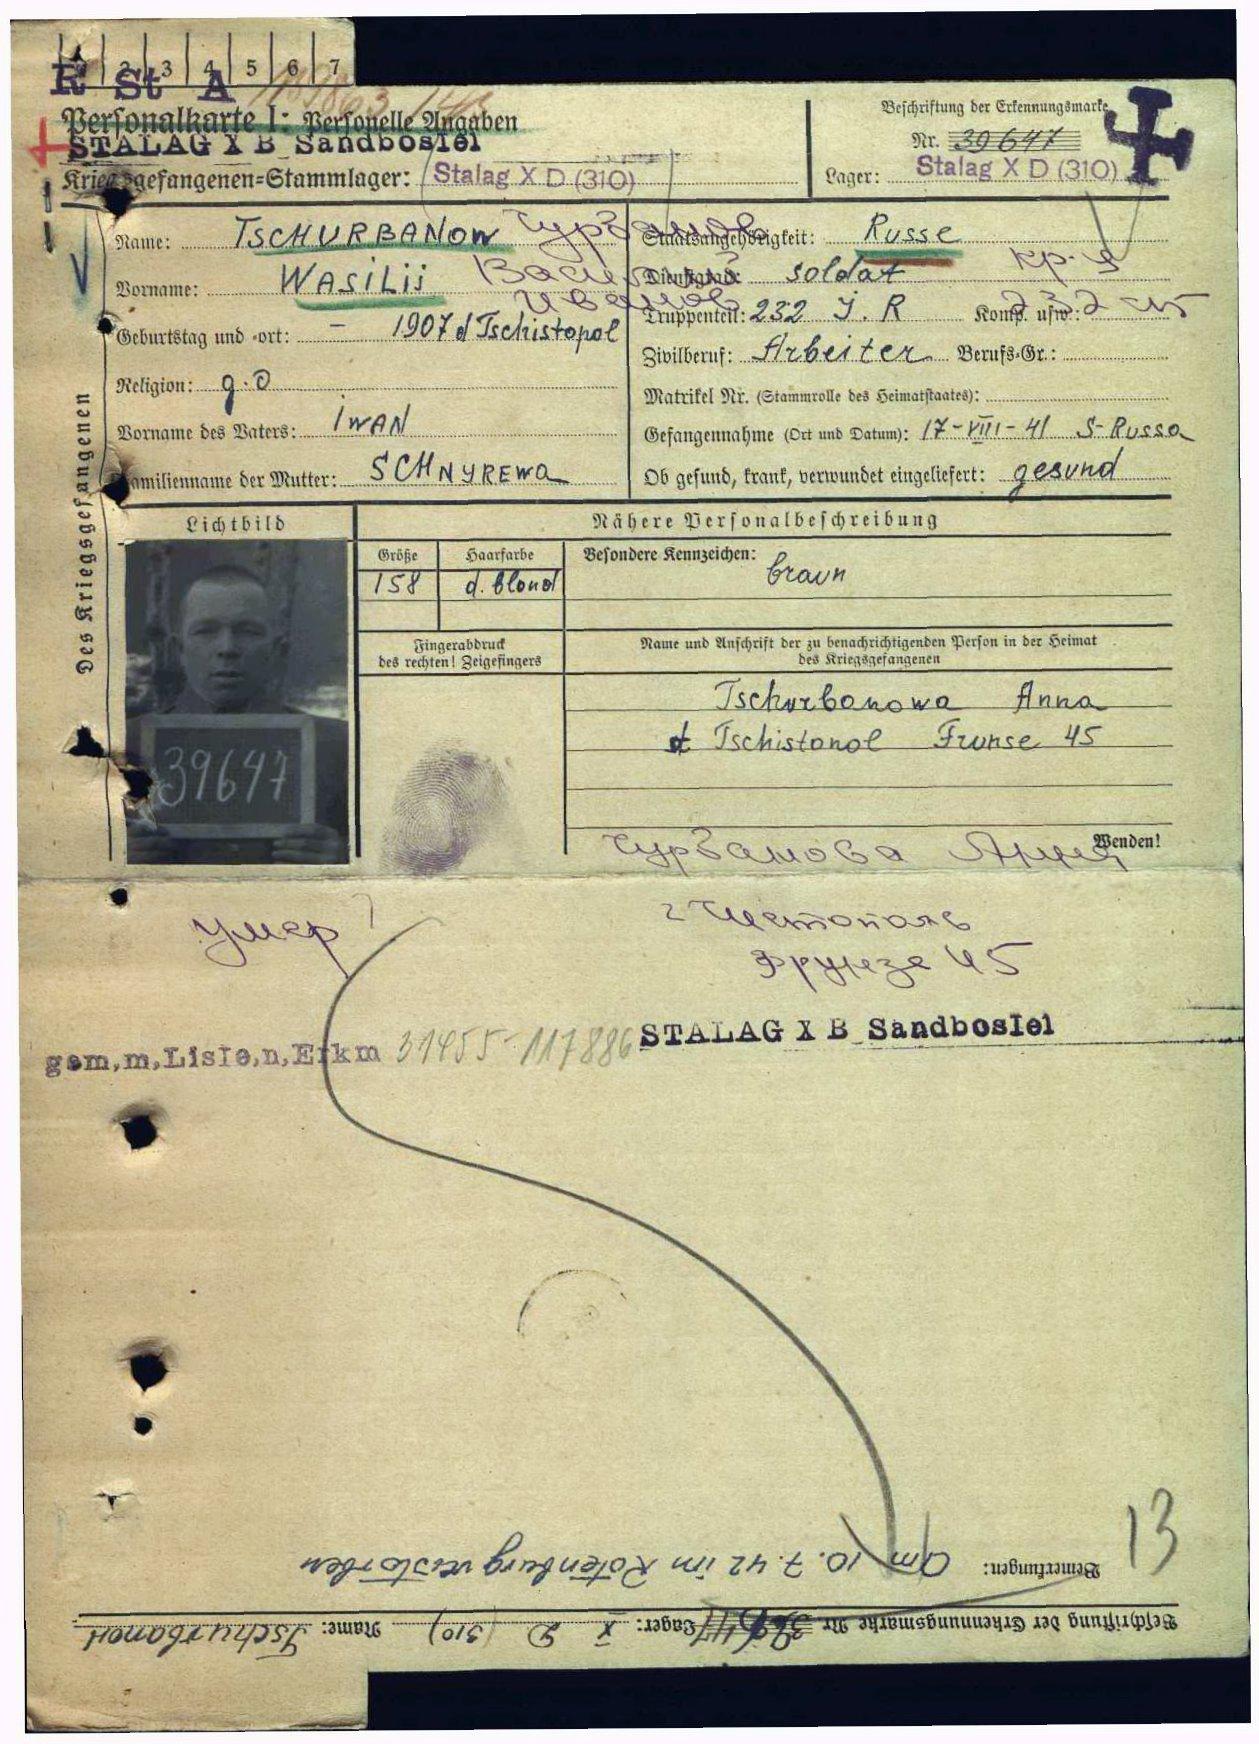 2 3 4 5 6 7
R St A
Personalkarte I: Personelle Angaben
STALAG X B Sandbostel
Kriegsgefangenen-Stammlager: Stalag X D (310)
Beschriftung der Erkennungsmarke
Nr. 39647
Lager: Stalag X D (310)
Des Kriegsgefangenen
Name: TSCHURBANOW Чурбанов
Vorname: WASILII Василий
Иванов
Geburtstag und -ort: – 1907 d Tschistopol
Religion: g.o
Vorname des Vaters: IWAN
Familienname der Mutter: SCHNYREWA
Staatsangehörigkeit: Russe
Dienstgrad: soldat кр-ц
Truppenteil: 232 J. R Komp. usw.: 232 сп
Zivilberuf: Arbeiter Berufs-Gr.:
Matrikel Nr. (Stammrolle des Heimatstaates):
Gefangennahme (Ort und Datum): 17-VIII-41 S-Russa
Ob gesund, krank, verwundet eingeliefert: gesund
Lichtbild
39647
Nähere Personalbeschreibung
Größe Haarfarbe Besondere Kennzeichen:
158 d. blond braun
Fingerabdruck
des rechten! Zeigefingers
Name und Anschrift der zu benachrichtigenden Person in der Heimat
des Kriegsgefangenen
Tschurbanowa Anna
d Tschistopol Frunse 45
Wenden!
Чурбанова Анна
умер
г Чистополь
Фрунзе 45
STALAG X B Sandbostel
gem,m,Liste,n,Erkm 31455-117886
13
Bemerkungen: Am 10.7.42 im Rotenburg verstorben
Beschriftung der Erkennungsmarke Nr 39647 Lager: X D (310) Name: Tschurbanow